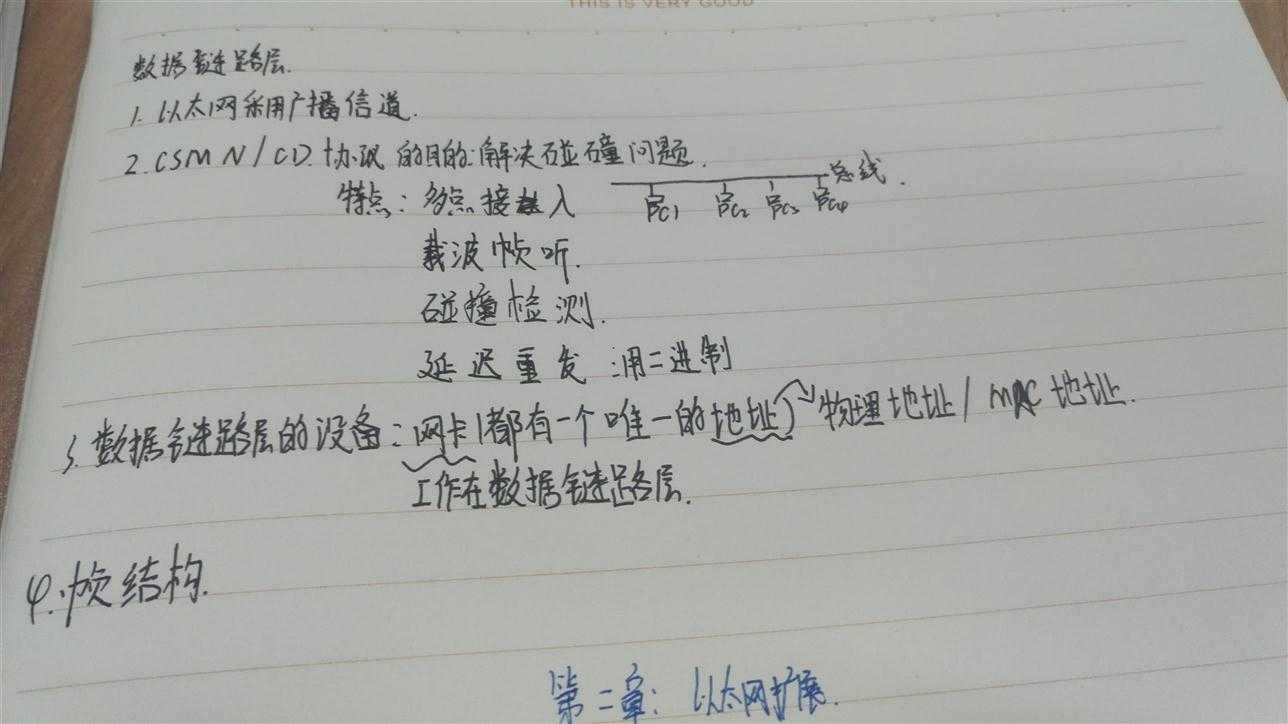 THIS IS VERY GOOD
数据链路层.
1. 以太网采用广播信道.
2. CSMN/CD 协议 的目的:解决碰撞问题.
特点: 多点接入 总线.
PC1 PC2 PC3 PC4
载波帧听.
碰撞检测.
延迟重发 :用二进制
3. 数据链路层的设备: 网卡(都有一个唯一的地址) 物理地址/MAC地址.
工作在数据链路层.
4. 帧结构.
第二章: 以太网扩展.